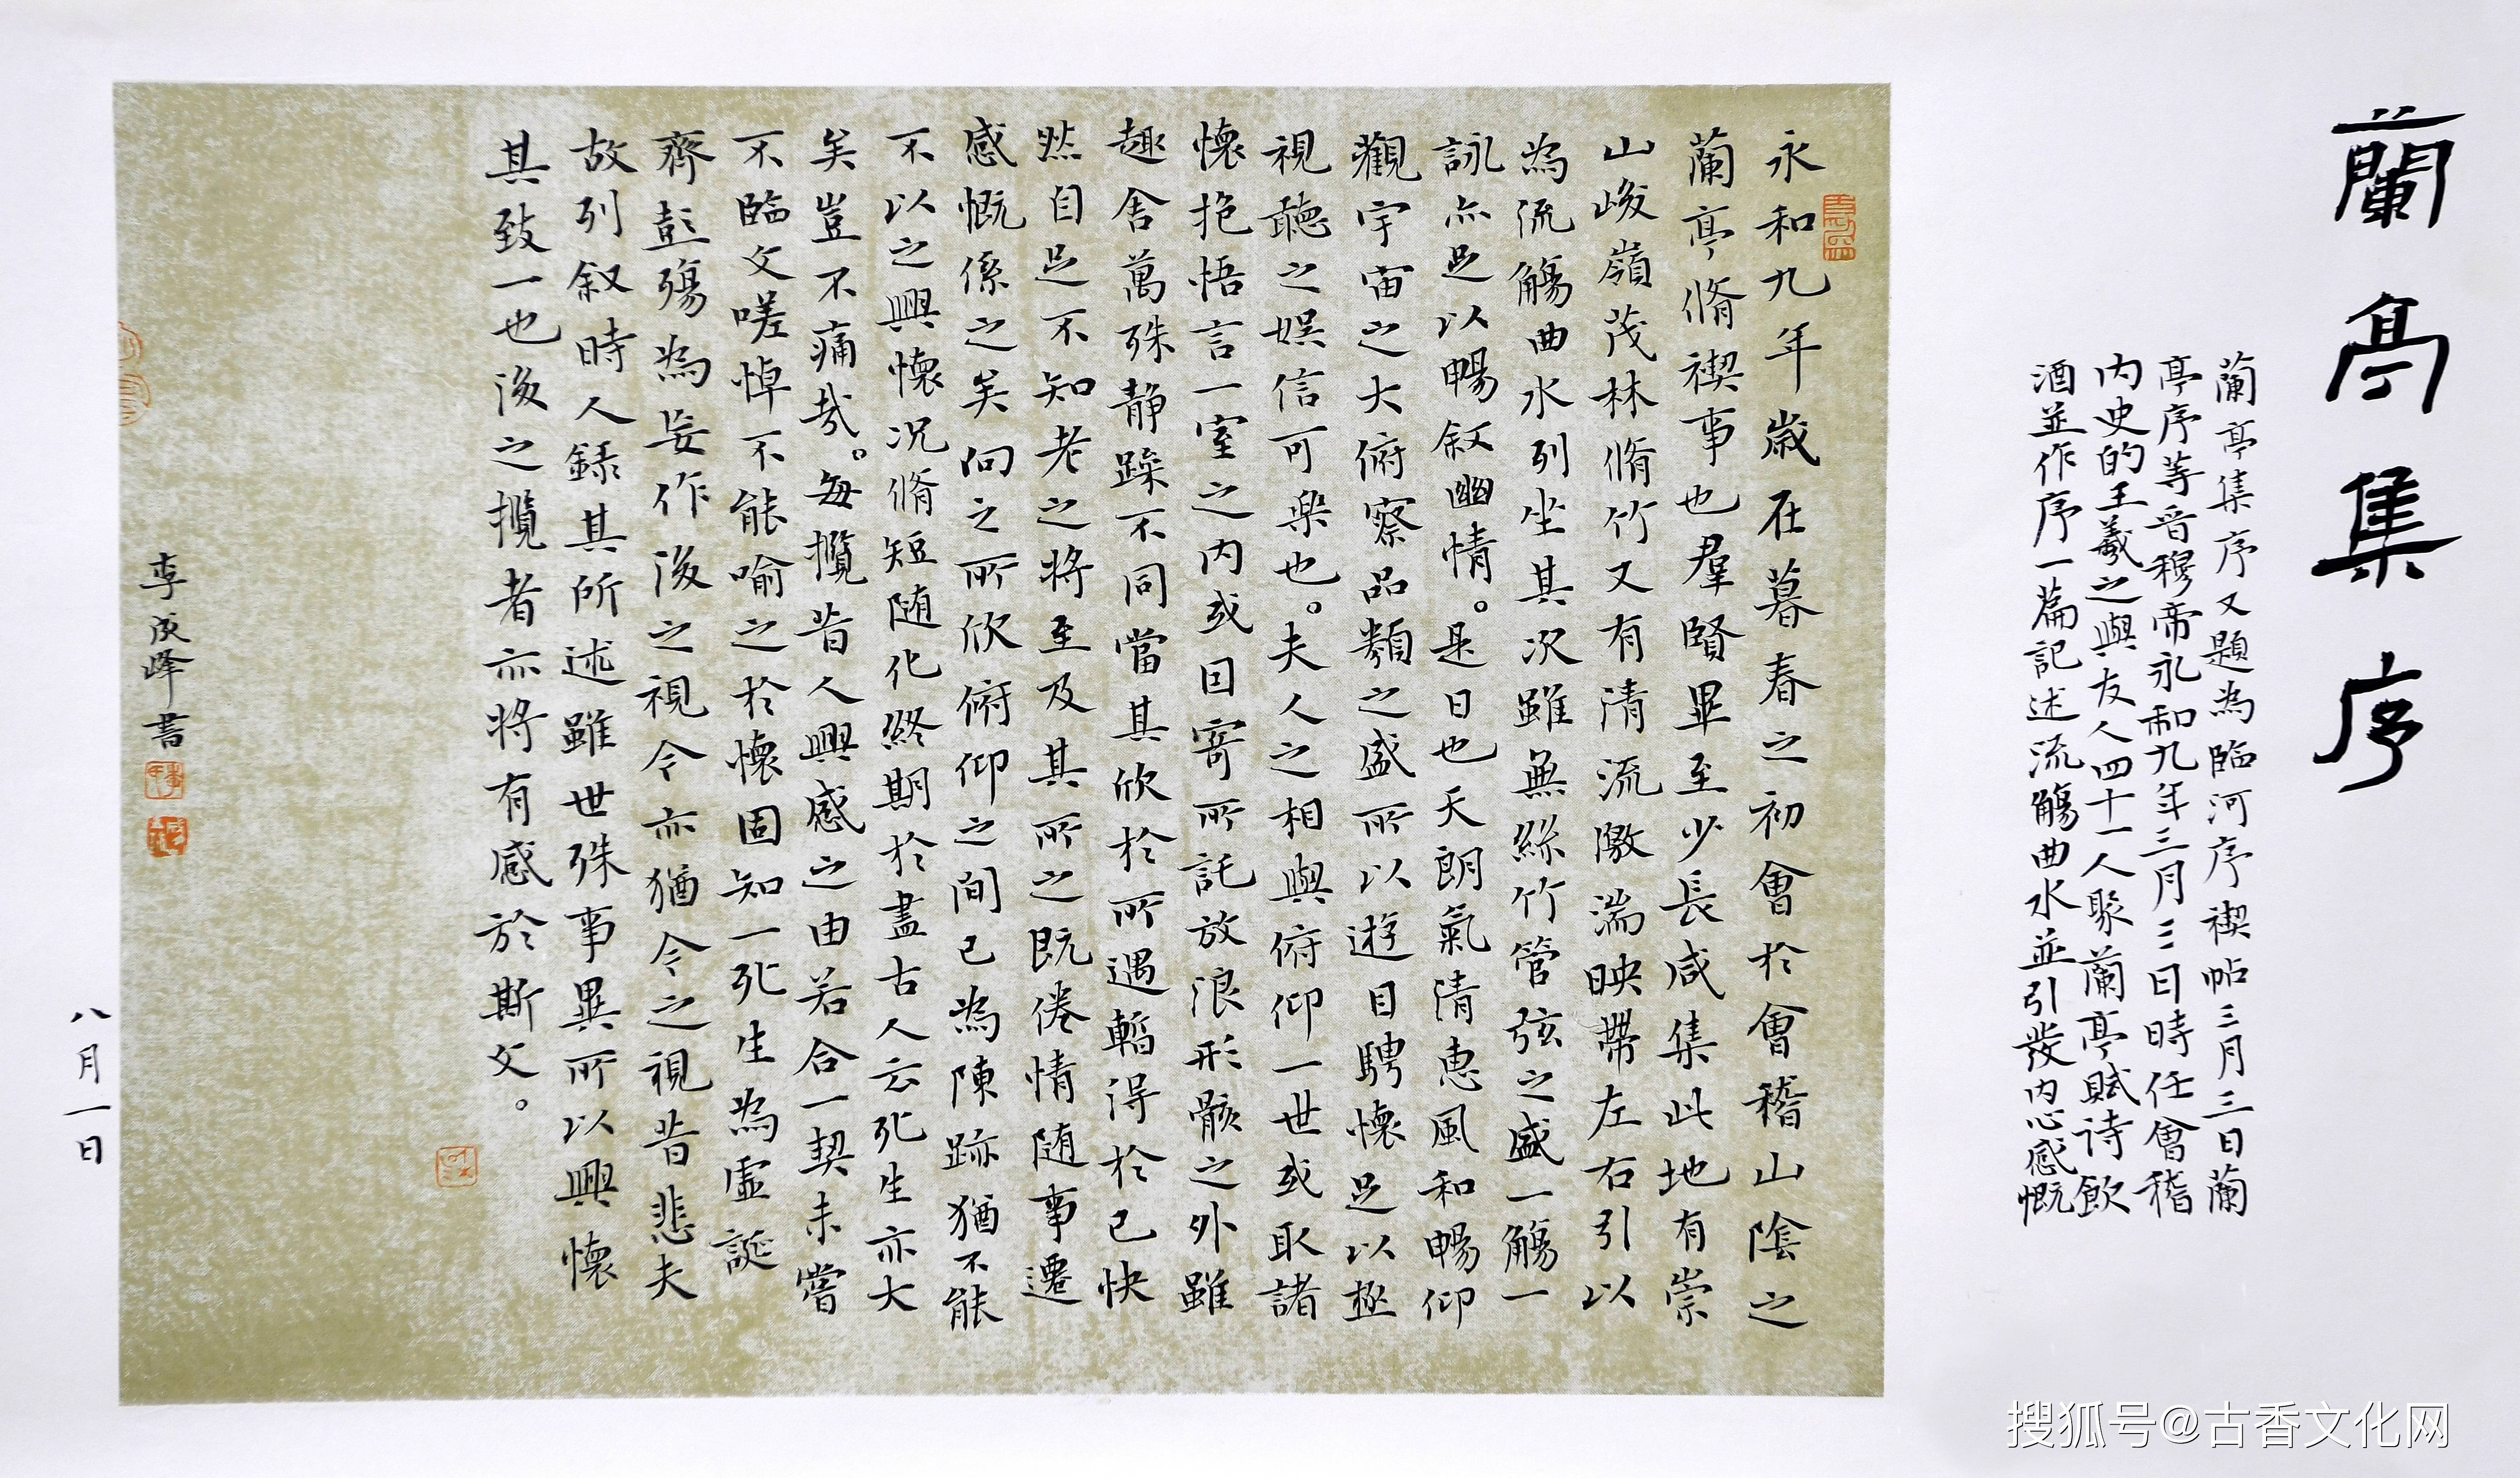 蘭亭集序
蘭亭集序又題為臨河序禊帖三月三日蘭
亭序等晋穆帝永和九年三月三日時任會稽
内史的王羲之與友人四十一人聚蘭亭賦诗飲
酒並作序一篇記述流觴曲水並引發内心感慨
永和九年歲在暮春之初會於會稽山陰之
蘭亭脩禊事也羣賢畢至少長咸集此地有崇
山峻嶺茂林脩竹又有清流激湍映帶左右引以
為流觴曲水列坐其次雖無絲竹管弦之盛一觴一
詠亦足以暢叙幽情。是日也天朗氣清惠風和暢仰
觀宇宙之大俯察品類之盛所以遊目騁懷足以極
視聽之娱信可樂也。夫人之相與俯仰一世或取諸
懷抱悟言一室之内或因寄所託放浪形骸之外雖
趣舍萬殊静躁不同當其欣於所遇暫得於己快
然自足不知老之将至及其所之既倦情随事遷
感慨係之矣向之所欣俯仰之間已為陳跡猶不能
不以之興懷况脩短随化終期於盡古人云死生亦大
矣豈不痛哉。每攬昔人興感之由若合一契未嘗
不臨文嗟悼不能喻之於懷固知一死生為虚誕
齊彭殤為妄作後之視今亦猶今之視昔悲夫
故列叙時人錄其所述雖世殊事異所以興懷
其致一也後之攬者亦将有感於斯文。
李成峰書
八月一日
搜狐号@古香文化网